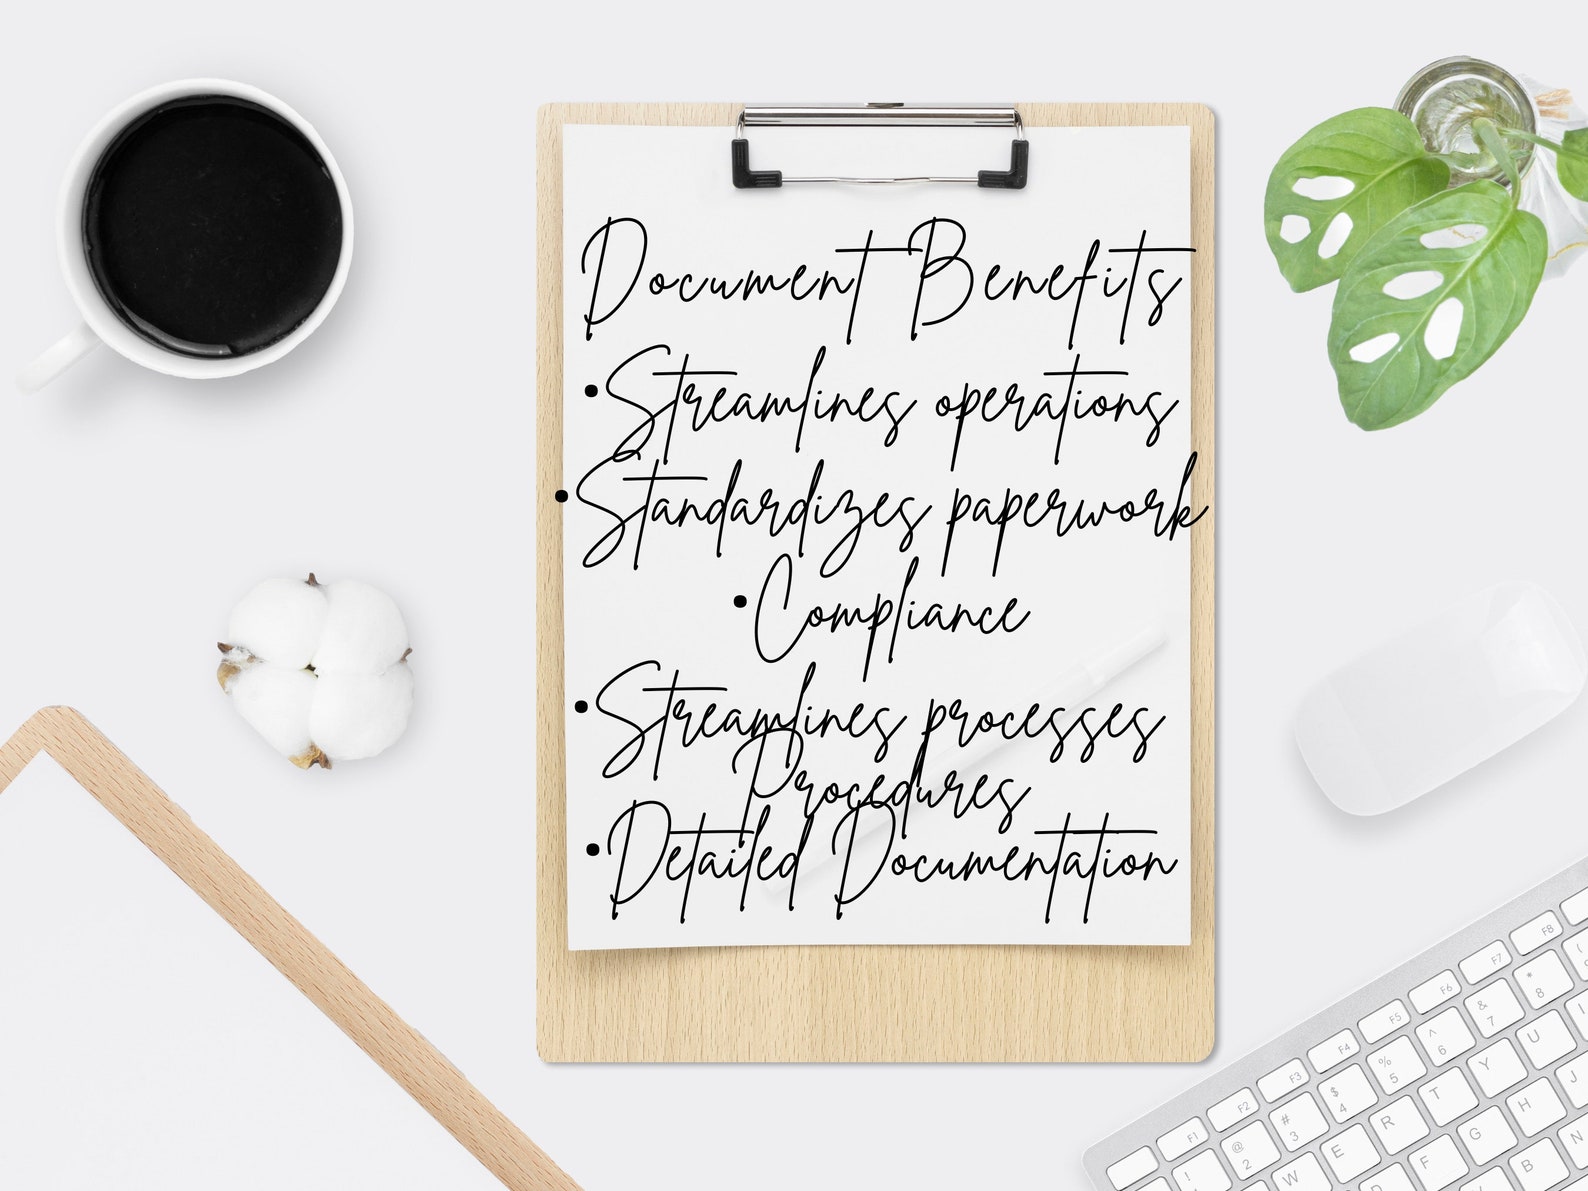 Document Benefits
•Streamlines operations
•Standardizes paperwork
•Compliance
•Streamlines processes
Procedures
•Detailed Documentation
F1
F2
F3
F4
F5
F6
F7
F8
!
@
2
#
3
$
4
%
5
^
6
&
7
*
8
(
W
E
R
T
Y
U
I
F
G
H
J
B
N